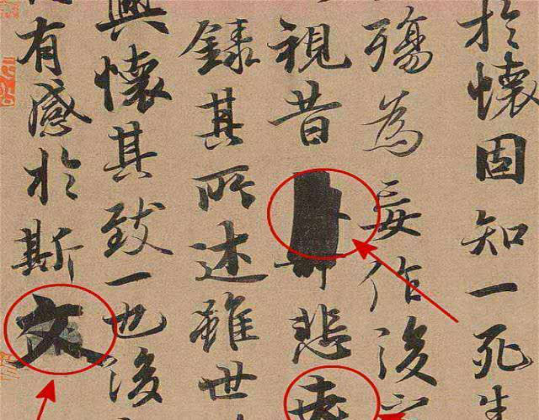 於懷固知一死生
殤為妄作後
視昔悲夫
錄其所述雖世
興懷其致一也後
有感於斯文